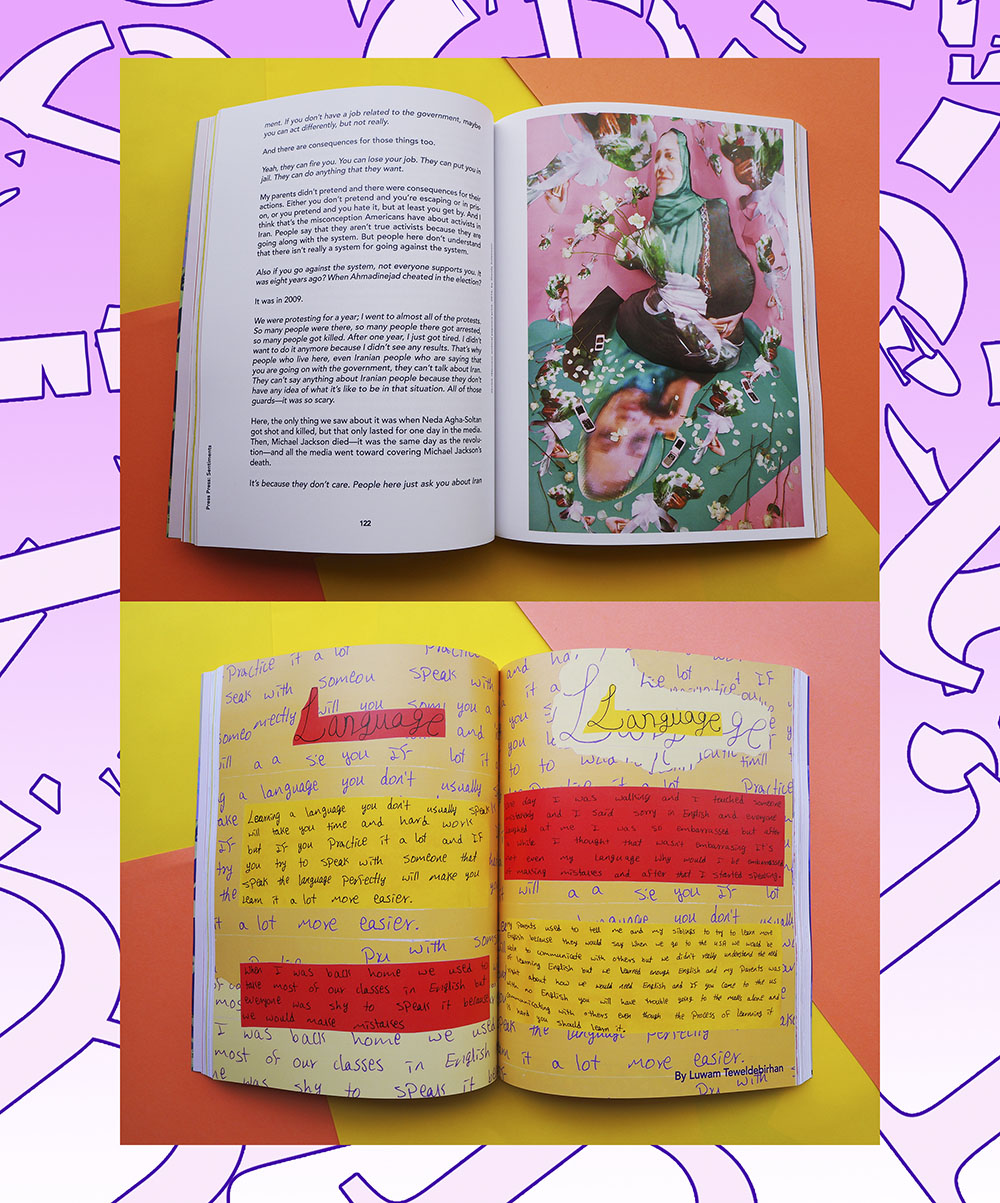 ment. If you don't have a job related to the government, maybe
you can act differently, but not really.
And there are consequences for those things too.
Yeah, they can fire you. You can lose your job. They can put you in
jail. They can do anything that they want.
My parents didn't pretend and there were consequences for their
actions. Either you don't pretend and you're escaping or in pris-
on, or you pretend and you hate it, but at least you get by. And I
think that's the misconception Americans have about activists in
Iran. People say that they aren't true activists because they are
going along with the system. But people here don't understand
that there isn't really a system for going against the system.
Also if you go against the system, not everyone supports you. It
was eight years ago? When Ahmadinejad cheated in the election?
It was in 2009.
We were protesting for a year; I went to almost all of the protests.
So many people were there, so many people there got arrested,
so many people got killed. After one year, I just got tired. I didn't
want to do it anymore because I didn't see any results. That's why
people who live here, even Iranian people who are saying that
you are going on with the government, they can't talk about Iran.
They can't say anything about Iranian people because they don't
have any idea of what it's like to be in that situation. All of those
guards—it was so scary.
Here, the only thing we saw about it was when Neda Agha-Soltan
got shot and killed, but that only lasted for one day in the media.
Then, Michael Jackson died—it was the same day as the revolu-
tion—and all the media went toward covering Michael Jackson's
death.
It's because they don't care. People here just ask you about Iran
Press Press: Sentiments
122
Practice it a lot
seak with someou speak with
Language
g a language you don't usually
Learning a language you don't usually speak
will take you time and hard work
but IF you Practice it a lot and IF
you try to speak with someone that
speak the language perfectly will make you
learn it a lot more easier.
t a lot more easier.
When I was back home we used to
take most of our classes in English but
everyone was shy to speak it because
we would make mistakes
I was back home we used
most of our classes in English
was shy to speak it be
Language
Practice
One day I was walking and I touched someone
and I said sorry in English and everyone
laughed at me I was so embarrassed but after
while I thought that wasn't embarrasing It's
not even my language why would I be embarrassed
of making mistakes and after that I started speaking.
will a a s'e you IF lot
language you don't usually
my Parents used to tell me and my siblings to try to learn most
English because they would say when we go to the USA we would be
able to communicate with others but we didn't really understand the need
of learning English but we learned enough English and my Parents was
right about how we would need English and IF you come to the US
with no English you will have trouble going to the meals about and
communicating with others even though the Process of learning it
is hard you should learn it.
speak the language perfectly
m it a lot more easier.
By Luwam Teweldebirhan